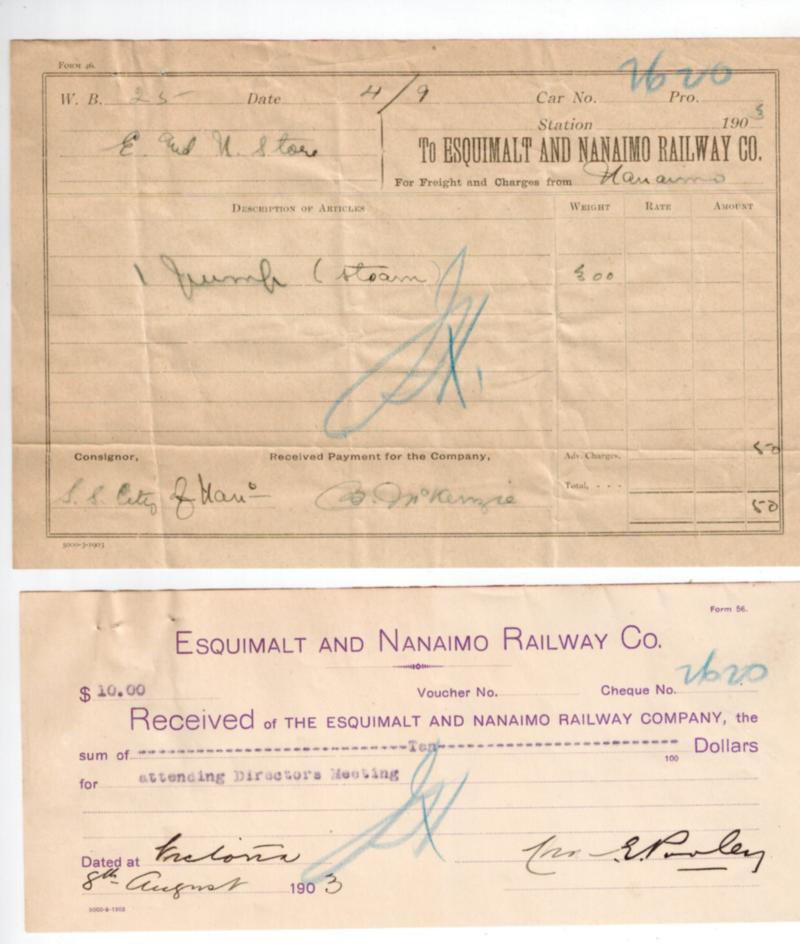 FORM 46.
W. B. 25 Date 4/9 Car No. 2620 Pro.
Station 1903
E. and N. Store
To ESQUIMALT AND NANAIMO RAILWAY CO.
For Freight and Charges from Nanaimo
DESCRIPTION OF ARTICLES WEIGHT RATE AMOUNT
1 Pump (Steam) 300
Consignor, Received Payment for the Company, Adv. Charges, 50
Total, - - - 50
S. S. City of Nano B. McKenzie
5000-3-1903
Form 56.
ESQUIMALT AND NANAIMO RAILWAY CO.
$ 10.00 Voucher No. Cheque No. 2620
Received OF THE ESQUIMALT AND NANAIMO RAILWAY COMPANY, the
sum of Ten 100 Dollars
for attending Directors Meeting
Dated at Victoria
8th August 1903 E. Pooley